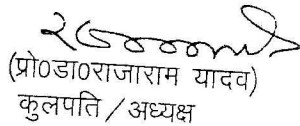 (प्रो0डा0राजाराम यादव)
कुलपति / अध्यक्ष